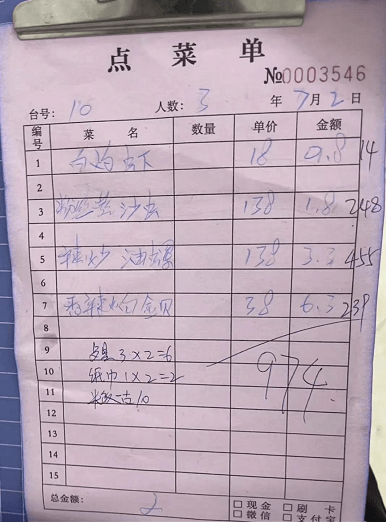 点菜单
№0003546
台号: 10 人数: 3 年 7月2日
编号 菜名 数量 单价 金额
1 白灼虾 18 0.8 14
2
3 粉丝蒸沙虫 138 1.8 248
4
5 辣炒 138 3.3 455
6
7 38 6.3 239
8
9 3×2=6
10 纸巾1×2=2
11 10
974
12
13
14
15
总金额: □现金 □刷卡
□微信 □支付宝